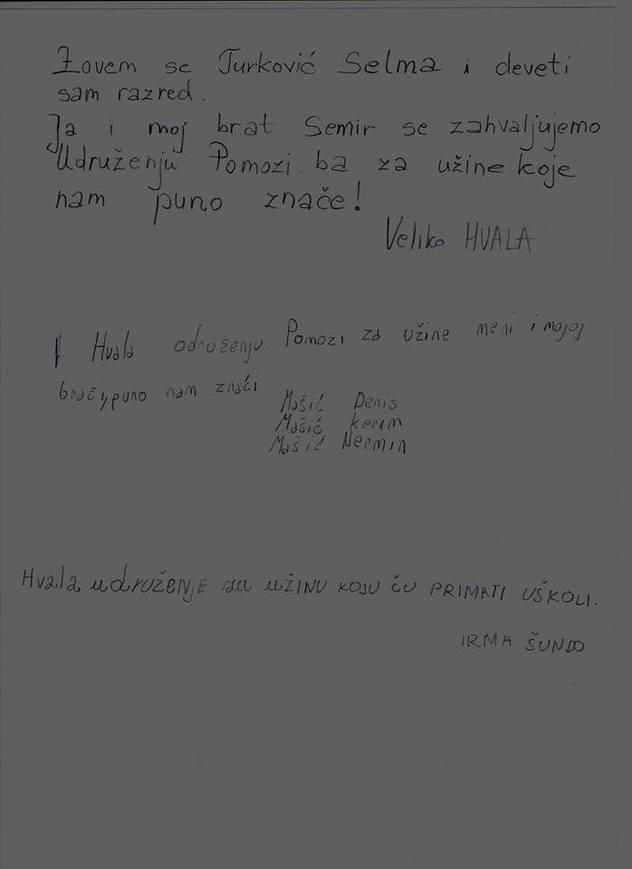 Zovem se Turković Selma i deveti
sam razred.
Ja i moj brat Semir se zahvaljujemo
Udruženju Pomozi.ba za užine koje
nam puno znače!
Veliko HVALA
Hvala odruženju Pomozi za užine meni i mojoj
braćy puno nam znači
Mašić Denis
Mašić Kerim
Mašić Nermin
Hvala udruženje za užinu koju ću PRIMATI UŠKOLI.
IRMA ŠUNDO